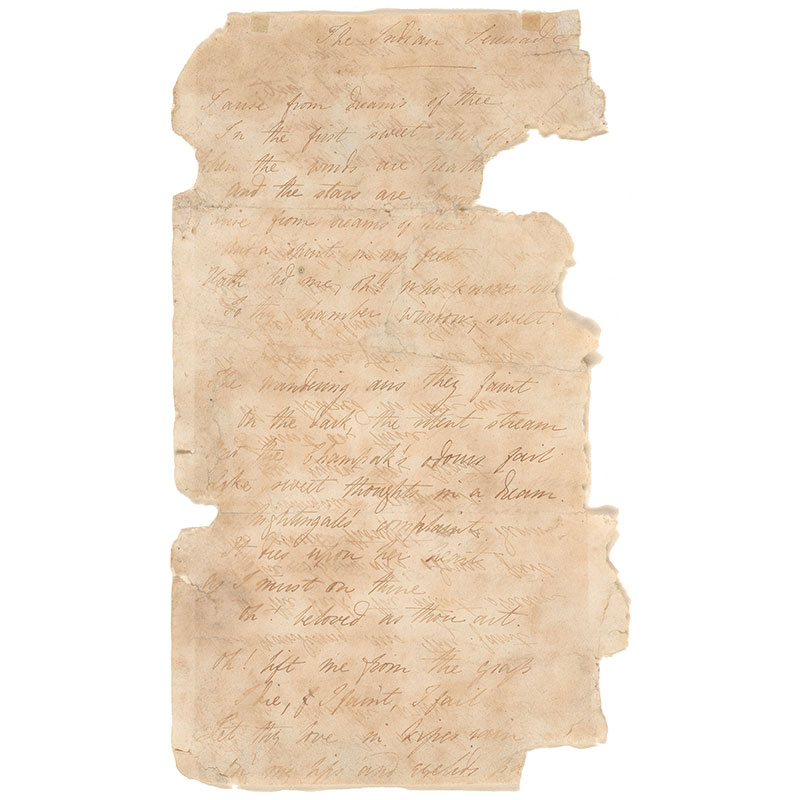 The Indian Serenade
I arise from dreams of thee
In the first sweet sleep of
When the winds are breath
and the stars are
arise from dreams of thee
has a spirit in my feet
Hath led me, oh! who knows
To thy chamber window, sweet!
The wandering airs they faint
On the dark, the silent stream
the Champak's odours fail
Like sweet thoughts in a dream.
Nightingale's complaint
It dies upon her heart
as I must on thine
Oh! beloved as thou art.
Oh! lift me from the grass
I die, & I faint, I fail
Let thy love in kisses rain
On my lips and eyelids